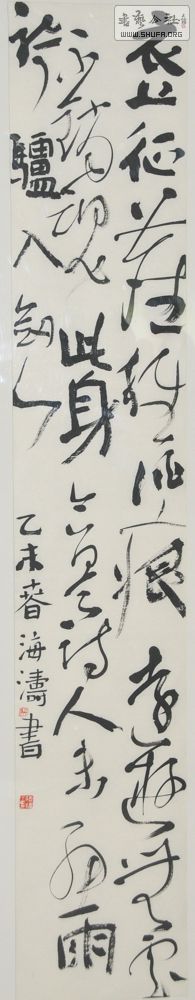 衣上征塵雜酒痕遠遊無處
不銷魂此身合是詩人未細雨
騎驢入劍門
乙未春海濤書
書藝公社
WWW.SHUFA.ORG